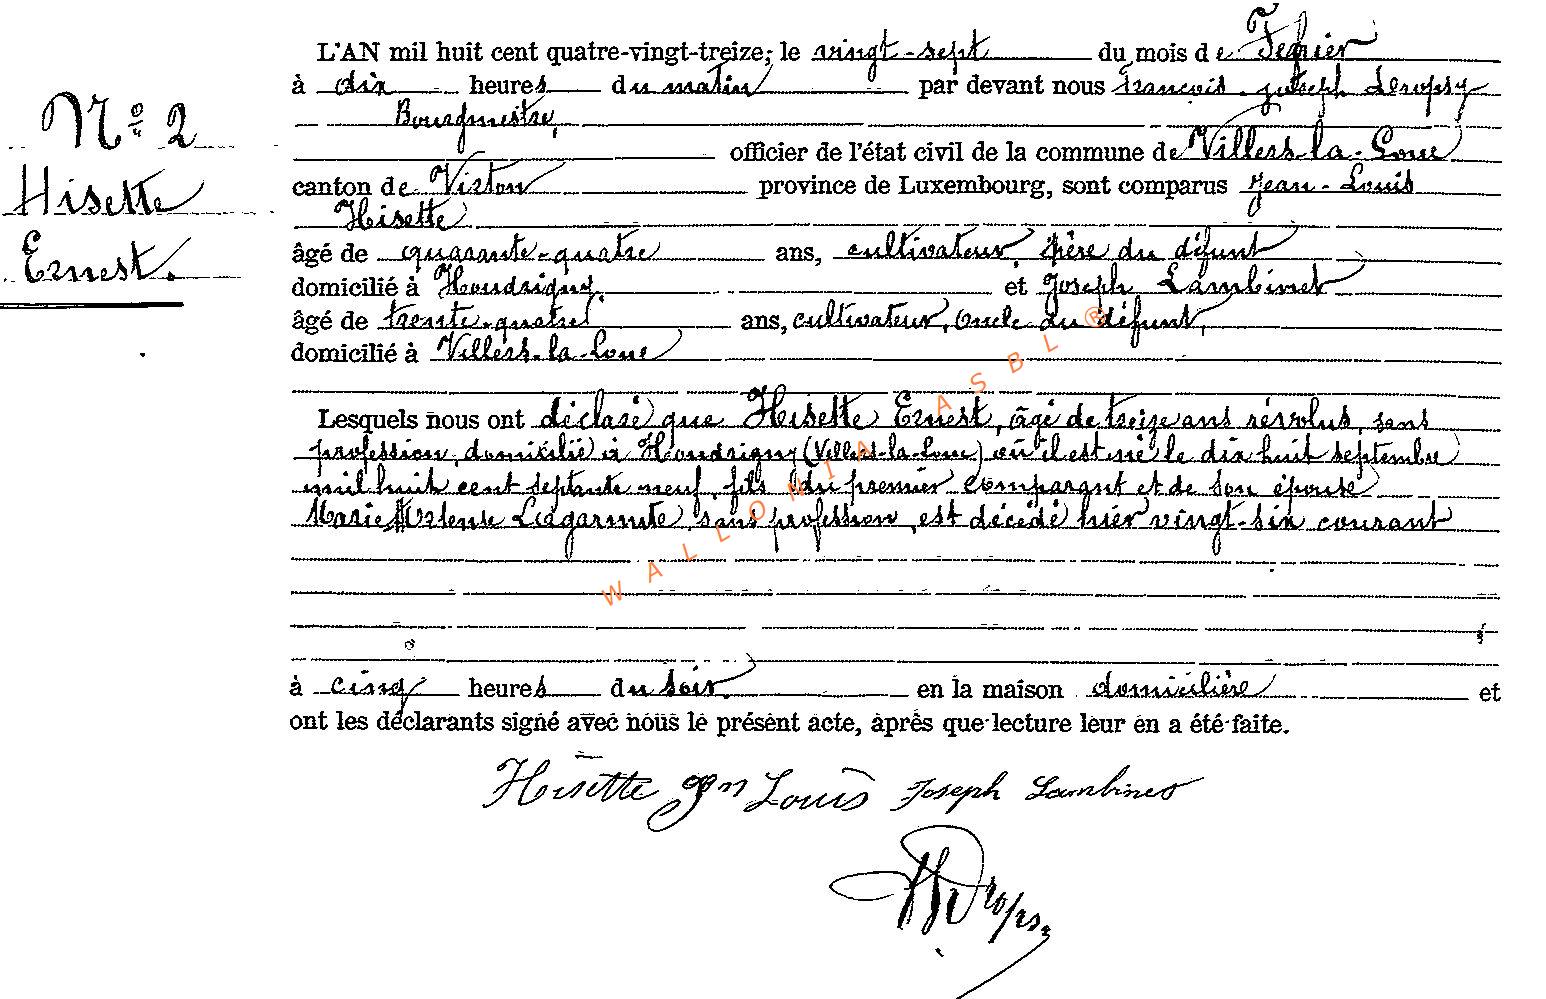 L'AN mil huit cent quatre-vingt-treize, le vingt-sept du mois de Février
à dix heures du matin par devant nous François-Joseph Dropsy
Bourgmestre,
officier de l'état civil de la commune de Villers-la-Loue
canton de Virton province de Luxembourg, sont comparus Jean-Louis
Hisette
âgé de quarante-quatre ans, cultivateur, père du défunt
domicilié à Houdrigny, et Joseph Lambinet
âgé de trente-quatre ans, cultivateur, oncle du défunt,
domicilié à Villers-la-Loue
Lesquels nous ont déclaré que Hisette Ernest, âgé de treize ans révolus, sans
profession, domicilié à Houdrigny (Villers-la-Loue) où il est né le dix huit septembre
mil huit cent septante neuf, fils du premier comparant et de son épouse
Marie Hortense Lagarmite, sans profession, est décédé hier vingt-six courant
à cinq heures du soir. en la maison domicilière et
ont les déclarants signé avec nous le présent acte, après que lecture leur en a été faite.
Nº 2
Hisette
Ernest.
Hisette Jn Louis Joseph Lambinet
Dropsy
WALLONIA ASBL ®